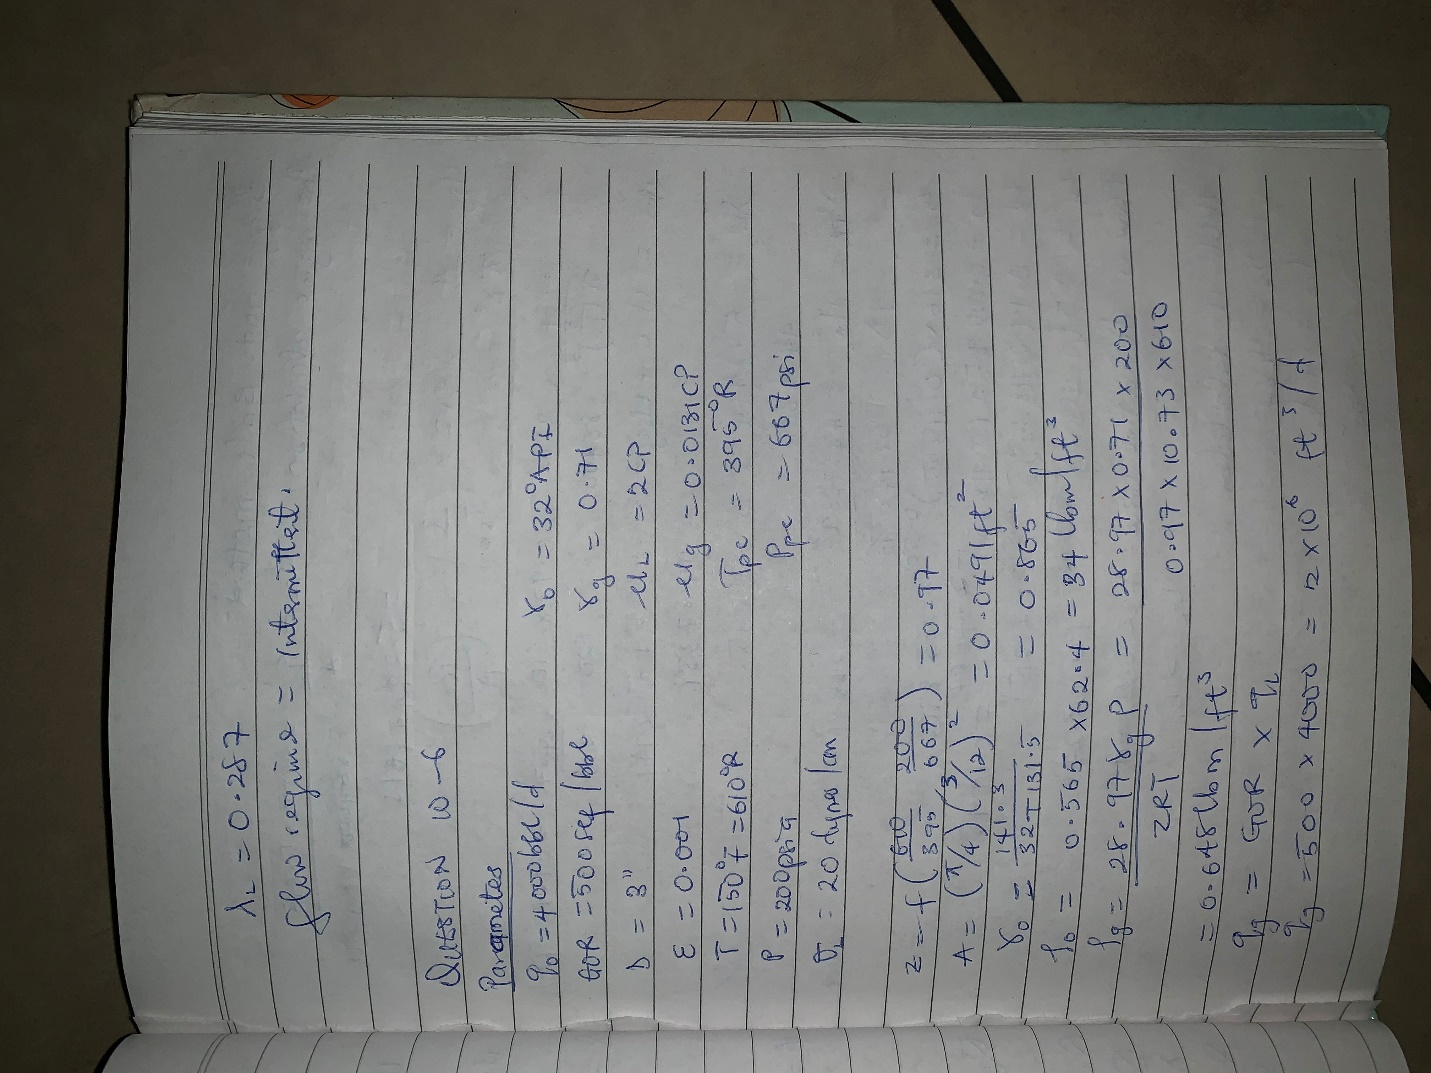 λL = 0.287
flow regime = Intermittent.
QUESTION 10-6
Parametes
q₀ = 4000bbl/d γ₀ = 32°API
GOR = 500scf/bbl γg = 0.71
D = 3" μL = 2CP
ε = 0.001 μg = 0.0131CP
T = 150°F = 610°R Tpc = 395°R
P = 200psia Ppc = 667psi
σL = 20 dynes/cm
z = f(610/395 200/667) = 0.97
A = (π/4)(3/12)² = 0.0491ft²
γ₀ = 141.3/32+131.5 = 0.865
ρ₀ = 0.565 × 62.4 = 34 lbm/ft³
ρg = 28.97γgP/ZRT = 28.97 × 0.71 × 200/0.97 × 10.73 × 610
= 0.648lbm/ft³
qg = GOR × qL
qg = 500 × 4000 = 12 × 10⁶ ft³/d